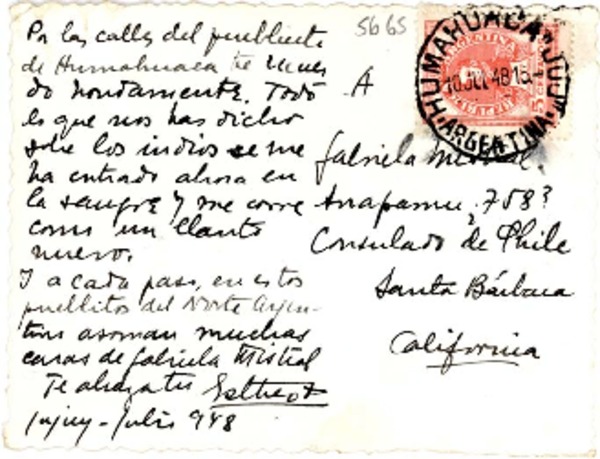 Por las calles del pueblecito
de Humahuaca te recuer
do hondamente. Todo
lo que nos has dicho
sobre los indios se me
ha entrado ahora en
la sangre y me corre
como un llanto
nuevo.
Y a cada paso, en estos
pueblitos del Norte Argen-
tino asoman muchas
caras de Gabriela Mistral
Te abraza tu Esther
Jujuy - Julio 948
5665
A
Gabriela Mistral
Anapamu, 758?
Consulado de Chile
Santa Bárbara
California
HUMAHUACA · JUJUY
ARGENTINA